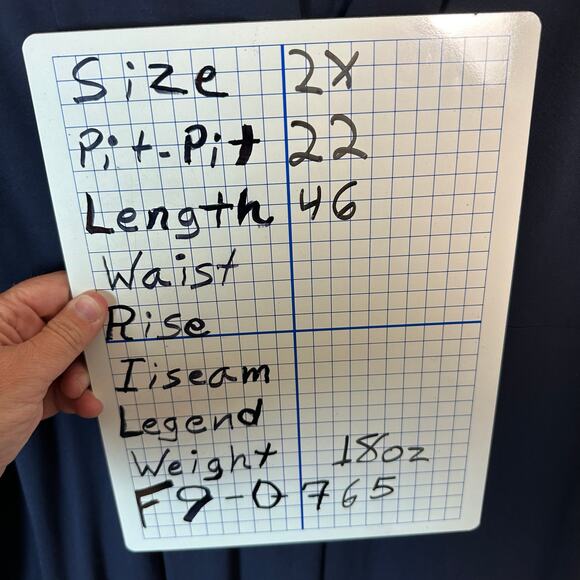 Size 2X
Pit-Pit 22
Length 46
Waist
Rise
Iiseam
Legend
Weight 18oz
F9-0765